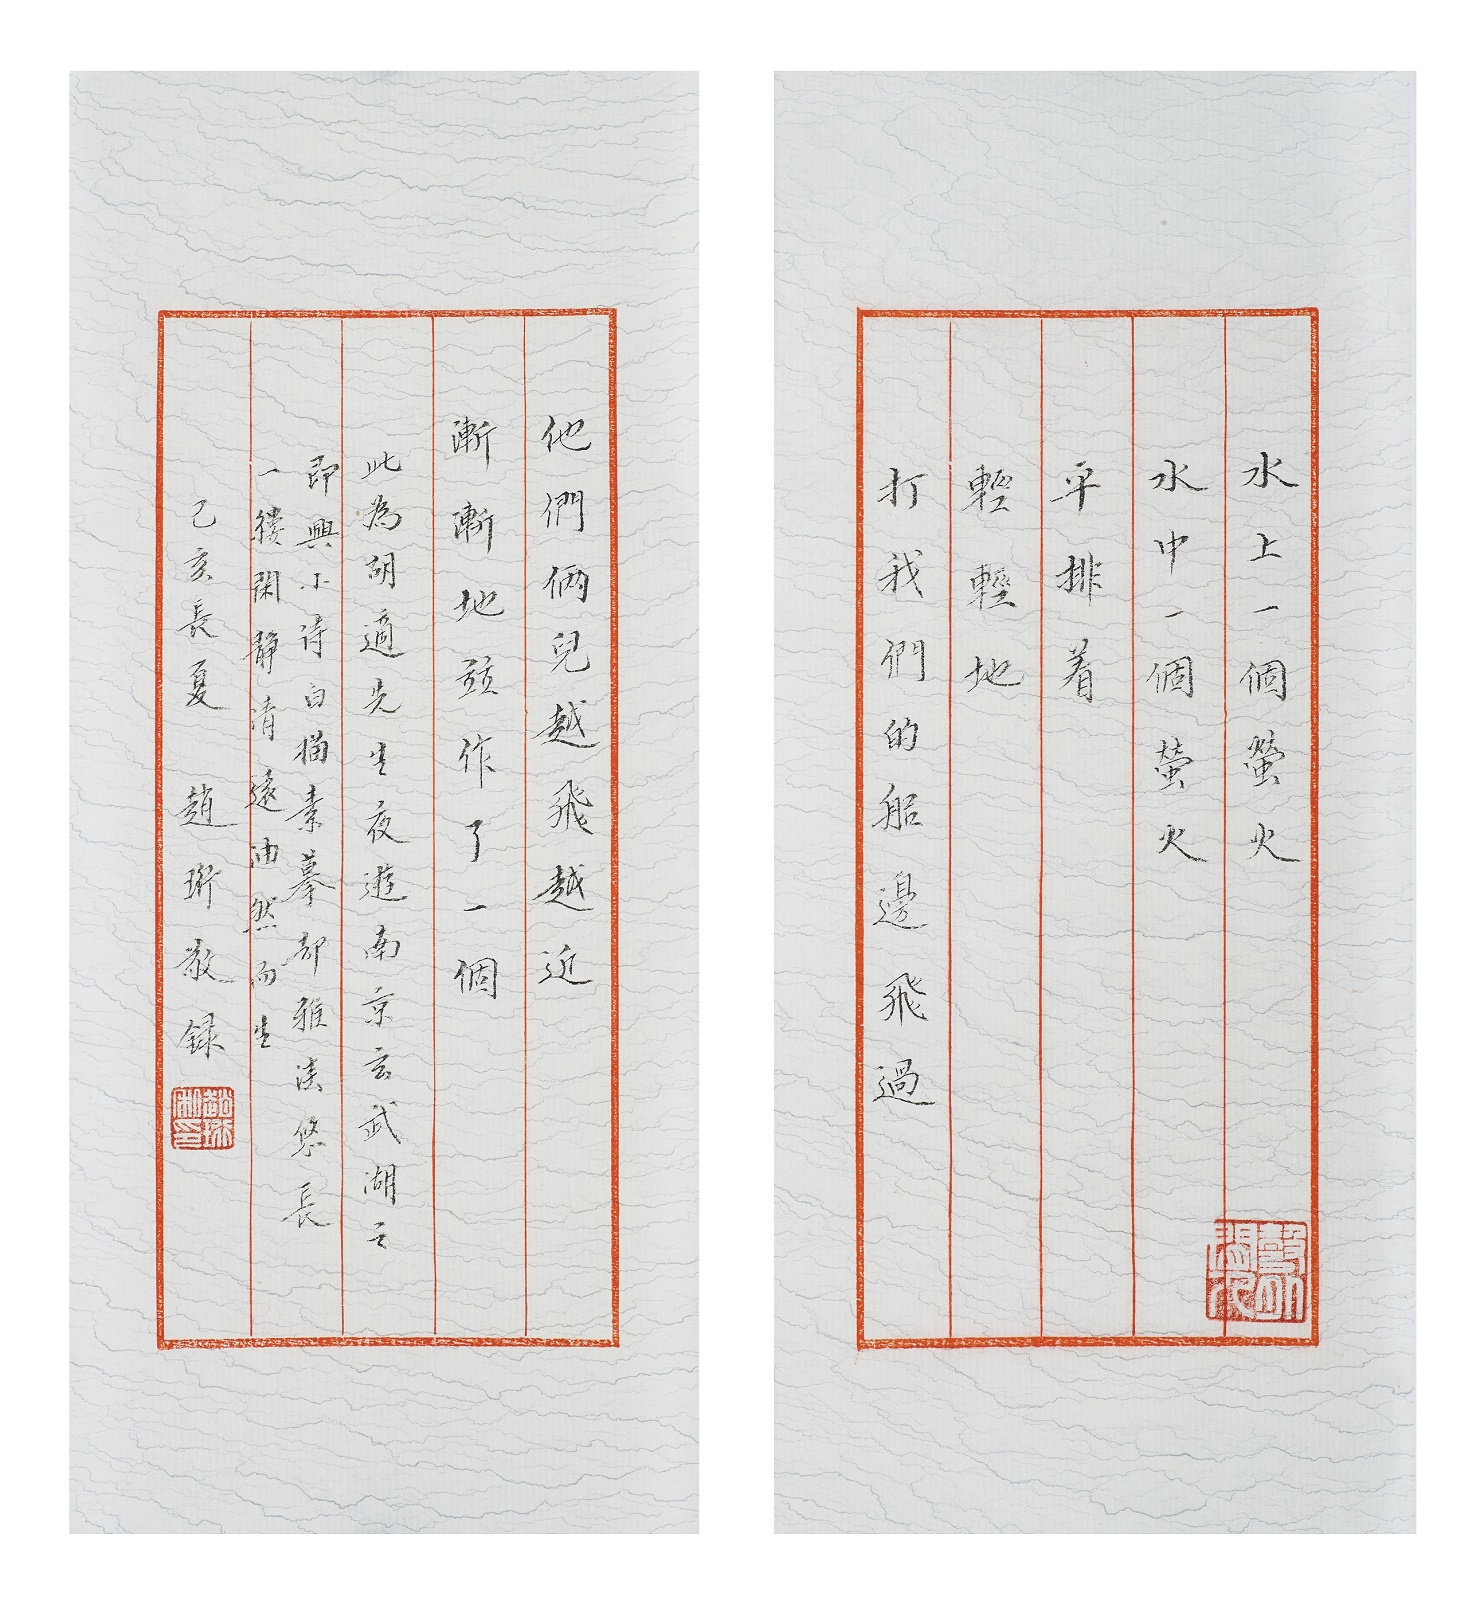 水上一個螢火
水中一個螢火
平排着
輕輕地
打我們的船邊飛過
他們倆兒越飛越近
漸漸地作了一個
此為胡適先生夜遊南京玄武湖之
即興小诗白描素摹却雅淡悠長
一縷閑靜清遠油然而生
己亥長夏 趙珩敬録